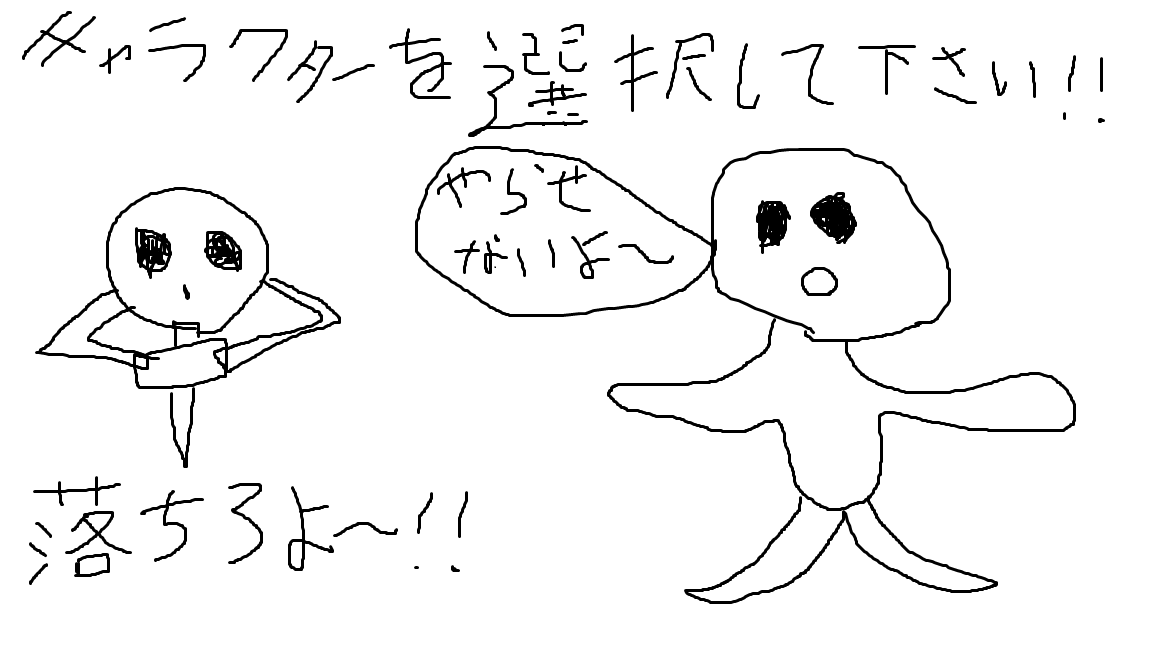 キャラクターを選択して下さい!!
やらせ
ないよ～
落ちろよ～!!